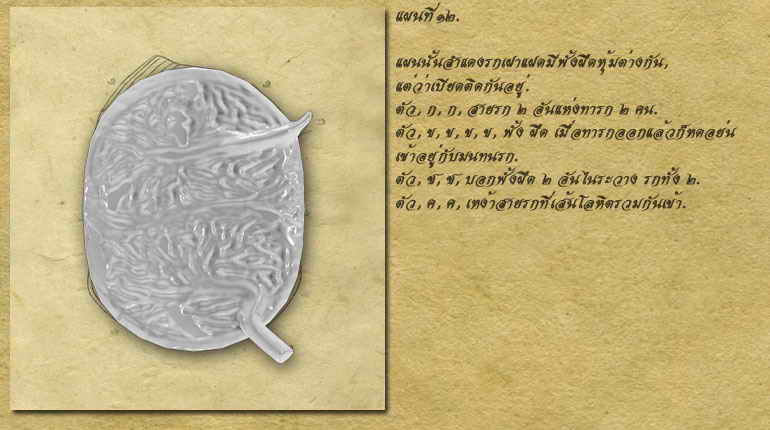 แผนที่ ๑๒.
แผนนั้นสำแดงรกเฝาแฝดมีพั้งผืดหุ้มต่างกัน,
แต่ว่าเบียดติดกันอยู่.
ตัว, ก, ก, สายรก ๒ อันแห่งทารก ๒ คน.
ตัว, ข, ข, ข, ข, พั้ง ผืด เมื่อทารกออกแล้วก็หดอย่น
เข้าอยู่กับมนทนรก.
ตัว, ช, ช, บอกพั้งผืด ๒ อันในระวาง รกทั้ง ๒.
ตัว, ค, ค, เหง้าสายรกที่เส้นโลหิตรวมกันเข้า.